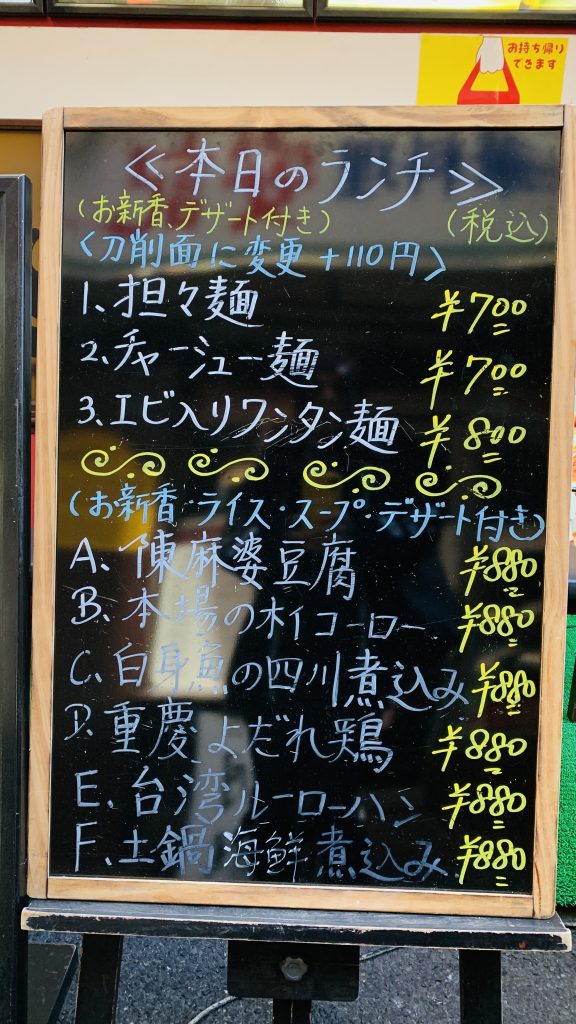 お持ち帰り
できます
≪本日のランチ≫
(お新香、デザート付き) (税込)
〈刀削面に変更 +110円〉
1、担々麺 ¥700
2、チャーシュー麺 ¥700
3、エビ入りワンタン麺 ¥800
(お新香・ライス・スープ・デザート付き)
A、陳麻婆豆腐 ¥880
B、本場のホイコーロー ¥880
C、白身魚の四川煮込み ¥880
D、重慶よだれ鶏 ¥880
E、台湾ルーローハン ¥880
F、土鍋海鮮煮込み ¥880